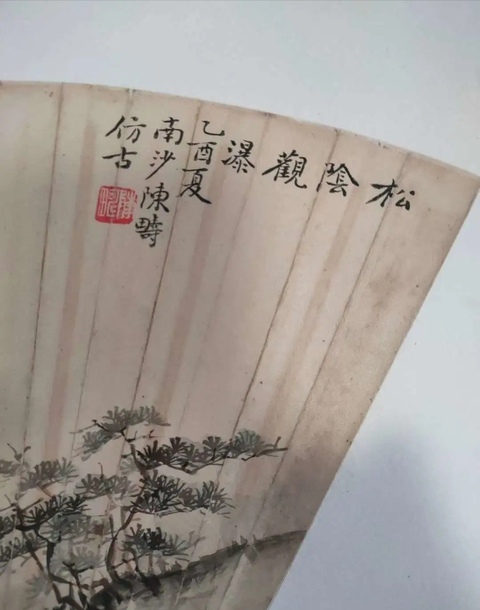 松陰觀瀑
乙酉夏
南沙陳疇
仿古